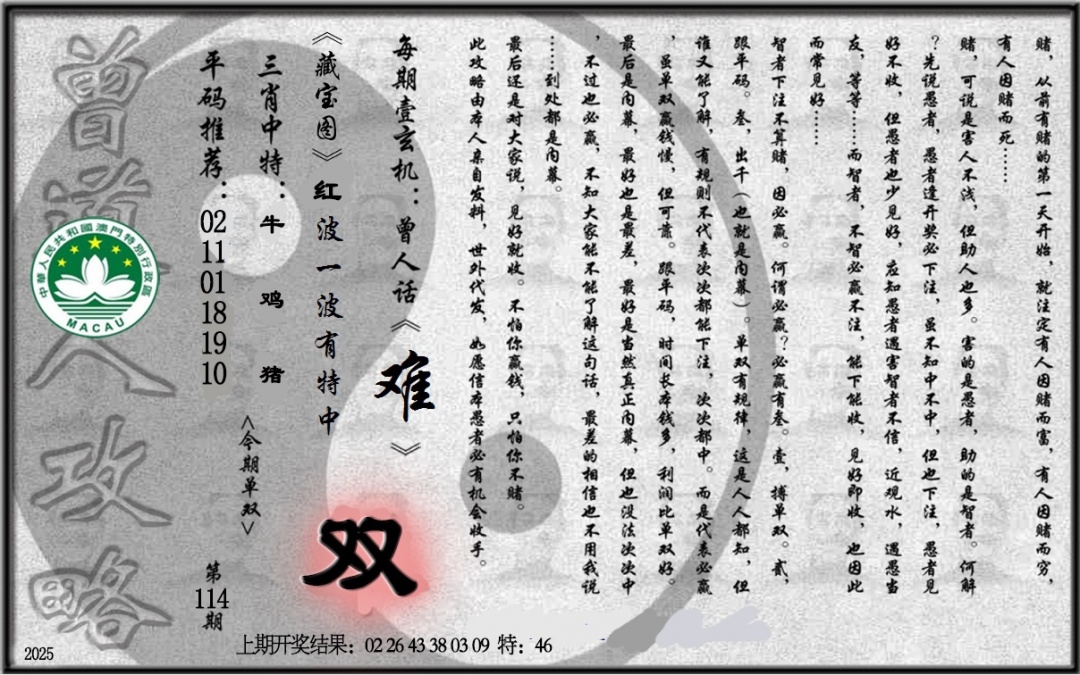 赌，从前有赌的第一天开始，就注定有人因赌而富，有人因赌而穷，
有人因赌而死……
赌，可说是害人不浅，但助人也多。害的是愚者，助的是智者。何解
？先说愚者，愚者逢开奖必下注，虽不知中不中，但也下注，愚者见
好不收，但愚者也少见好，应知愚者遇害智者不信，近观水，遇愚当
友，等等……而智者，不智必赢不注，能下能收，见好即收，也因此
而常见好……
智者下注不算赌，因必赢。何谓必赢？必赢有叁。壹，搏单双。贰，
跟平码。叁，出千（也就是内幕）。单双有规律，这是人人都知，但
谁又能了解，有规则不代表次次都能下注，次次都中。而是代表必赢
，虽单双赢钱慢，但可靠。跟平码，时间长本钱多，利润比单双好。
最后是内幕，最好也是最差，最好是当然真正内幕，但也没法次次中
，不过也必赢，不知大家能不能了解这句话，最差的相信也不用我说
……到处都是内幕。
最后还是对大家说，见好就收。不怕你赢钱，只怕你不赌。
此攻略由本人亲自发料，世外代发，如愿信本愚者必有机会收手。
每期壹玄机：曾人话《难》
《藏宝图》红波一波有特中
三肖中特：牛 鸡 猪
<今期单双>
双
平码推荐：02 11 01 18 19 10
第114期
曾道人攻略
中華人民共和國澳門特別行政區
MACAU
上期开奖结果：02 26 43 38 03 09 特：46
2025